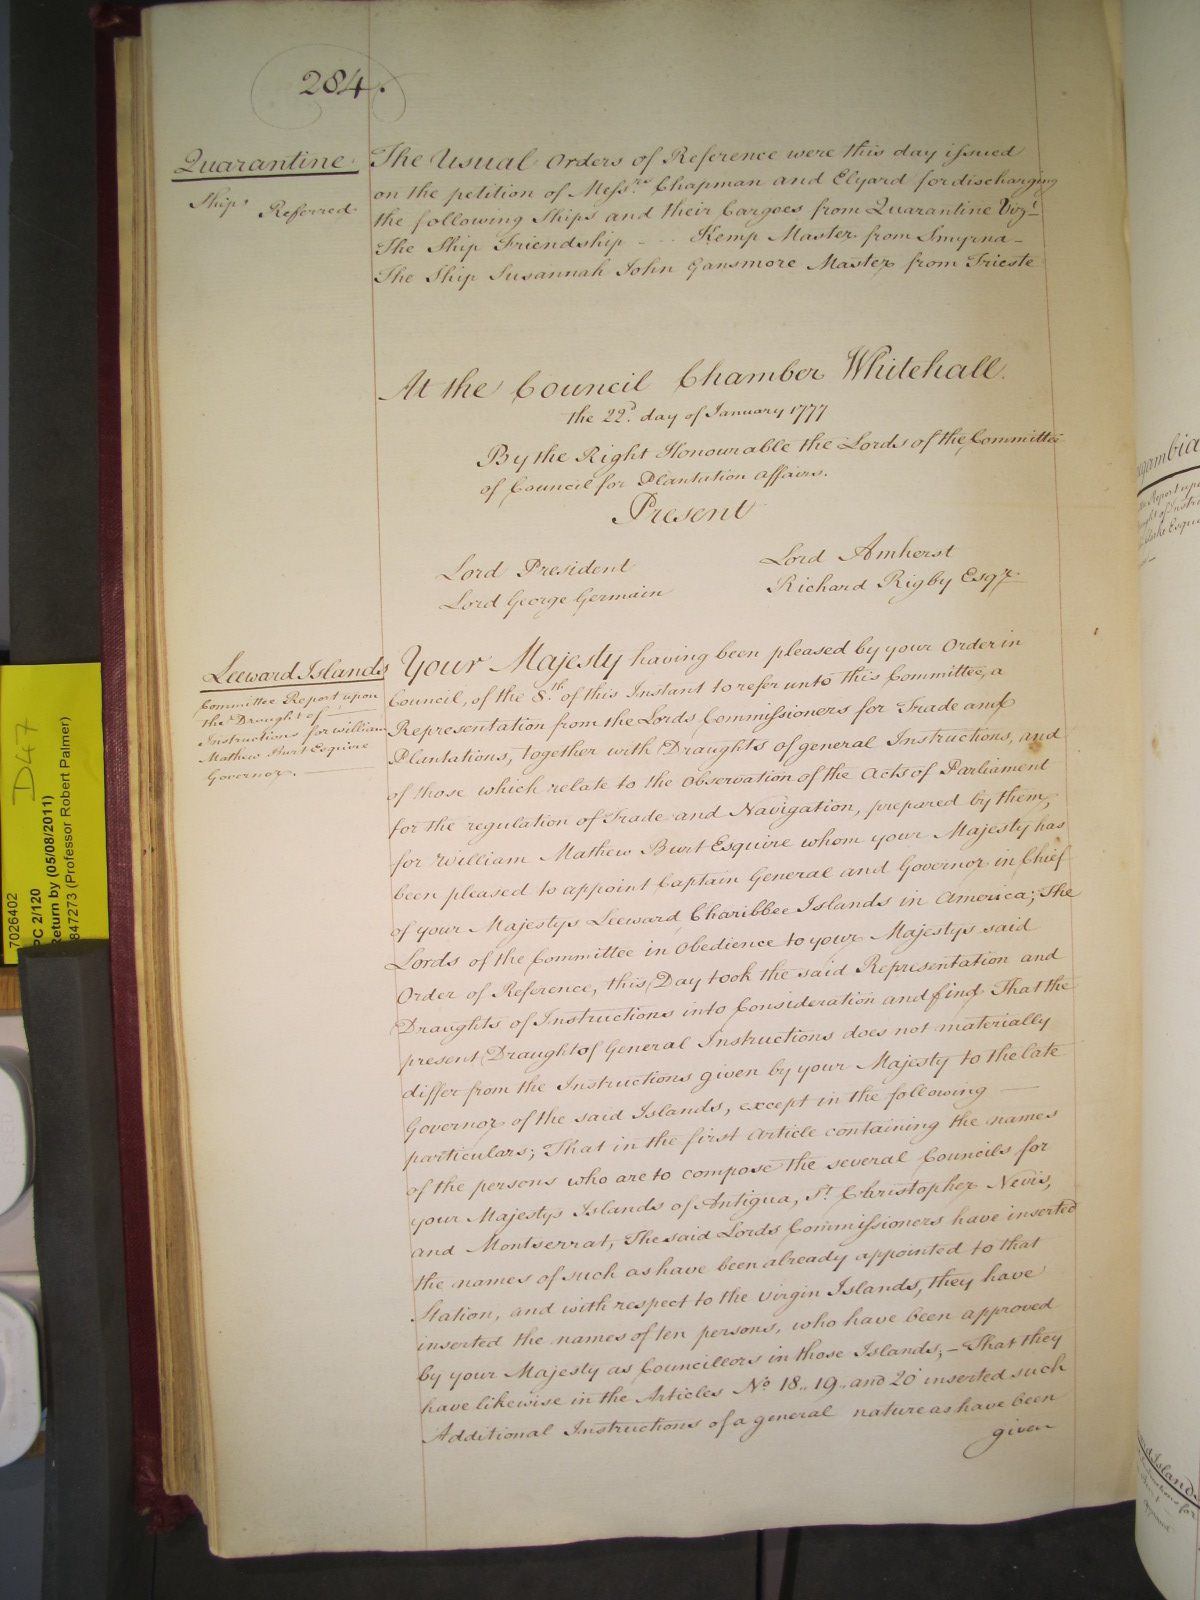 284.
Quarantine
Ships Referred
The Usual Orders of Reference were this day issued
on the petition of Messrs. Chapman and Elyard for discharging
the following Ships and their Cargoes from Quarantine Vizt.
The Ship Friendship - - - Kemp Master from Smyrna -
The Ship Susannah John Gansmore Master from Trieste
At the Council Chamber Whitehall.
the 22d. day of January 1777
By the Right Honourable the Lords of the Committee
of Council for Plantation Affairs.
Present
Lord President
Lord George Germain
Lord Amherst
Richard Rigby Esqr
Leeward Islands
Committee Report upon
the Draught of
Instructions for William
Mathew Burt Esquire
Governor.
Your Majesty having been pleased by your Order in
Council, of the 8th. of this Instant to refer unto this Committee, a
Representation from the Lords Commissioners for Trade and
Plantations, together with Draughts of general Instructions, and
of those which relate to the Observation of the Acts of Parliament
for the regulation of Trade and Navigation, prepared by them,
for William Mathew Burt Esquire whom your Majesty has
been pleased to appoint Captain General and Governor in Chief
of your Majestys Leeward Charibbee Islands in America; The
Lords of the Committee in Obedience to your Majestys said
Order of Reference, this Day took the said Representation and
Draughts of Instructions into Consideration and find That the
present Draught of General Instructions does not materially
differ from the Instructions given by your Majesty to the late
Governor of the said Islands, except in the following
particulars; That in the first Article containing the names
of the persons who are to compose the several Councils for
your Majestys Islands of Antigua, St. Christopher Nevis,
and Montserrat, The said Lords Commissioners have inserted
the names of such as have been already appointed to that
Station, and with respect to the Virgin Islands, they have
inserted the names of ten persons, who have been approved
by your Majesty as Councillors in those Islands; - That they
have likewise in the Articles No 18.. 19.. and 20 inserted such
Additional Instructions of a general nature as have been
given
7026402
D47
PC 2/120
Return by (05/08/2011)
847273 (Professor Robert Palmer)